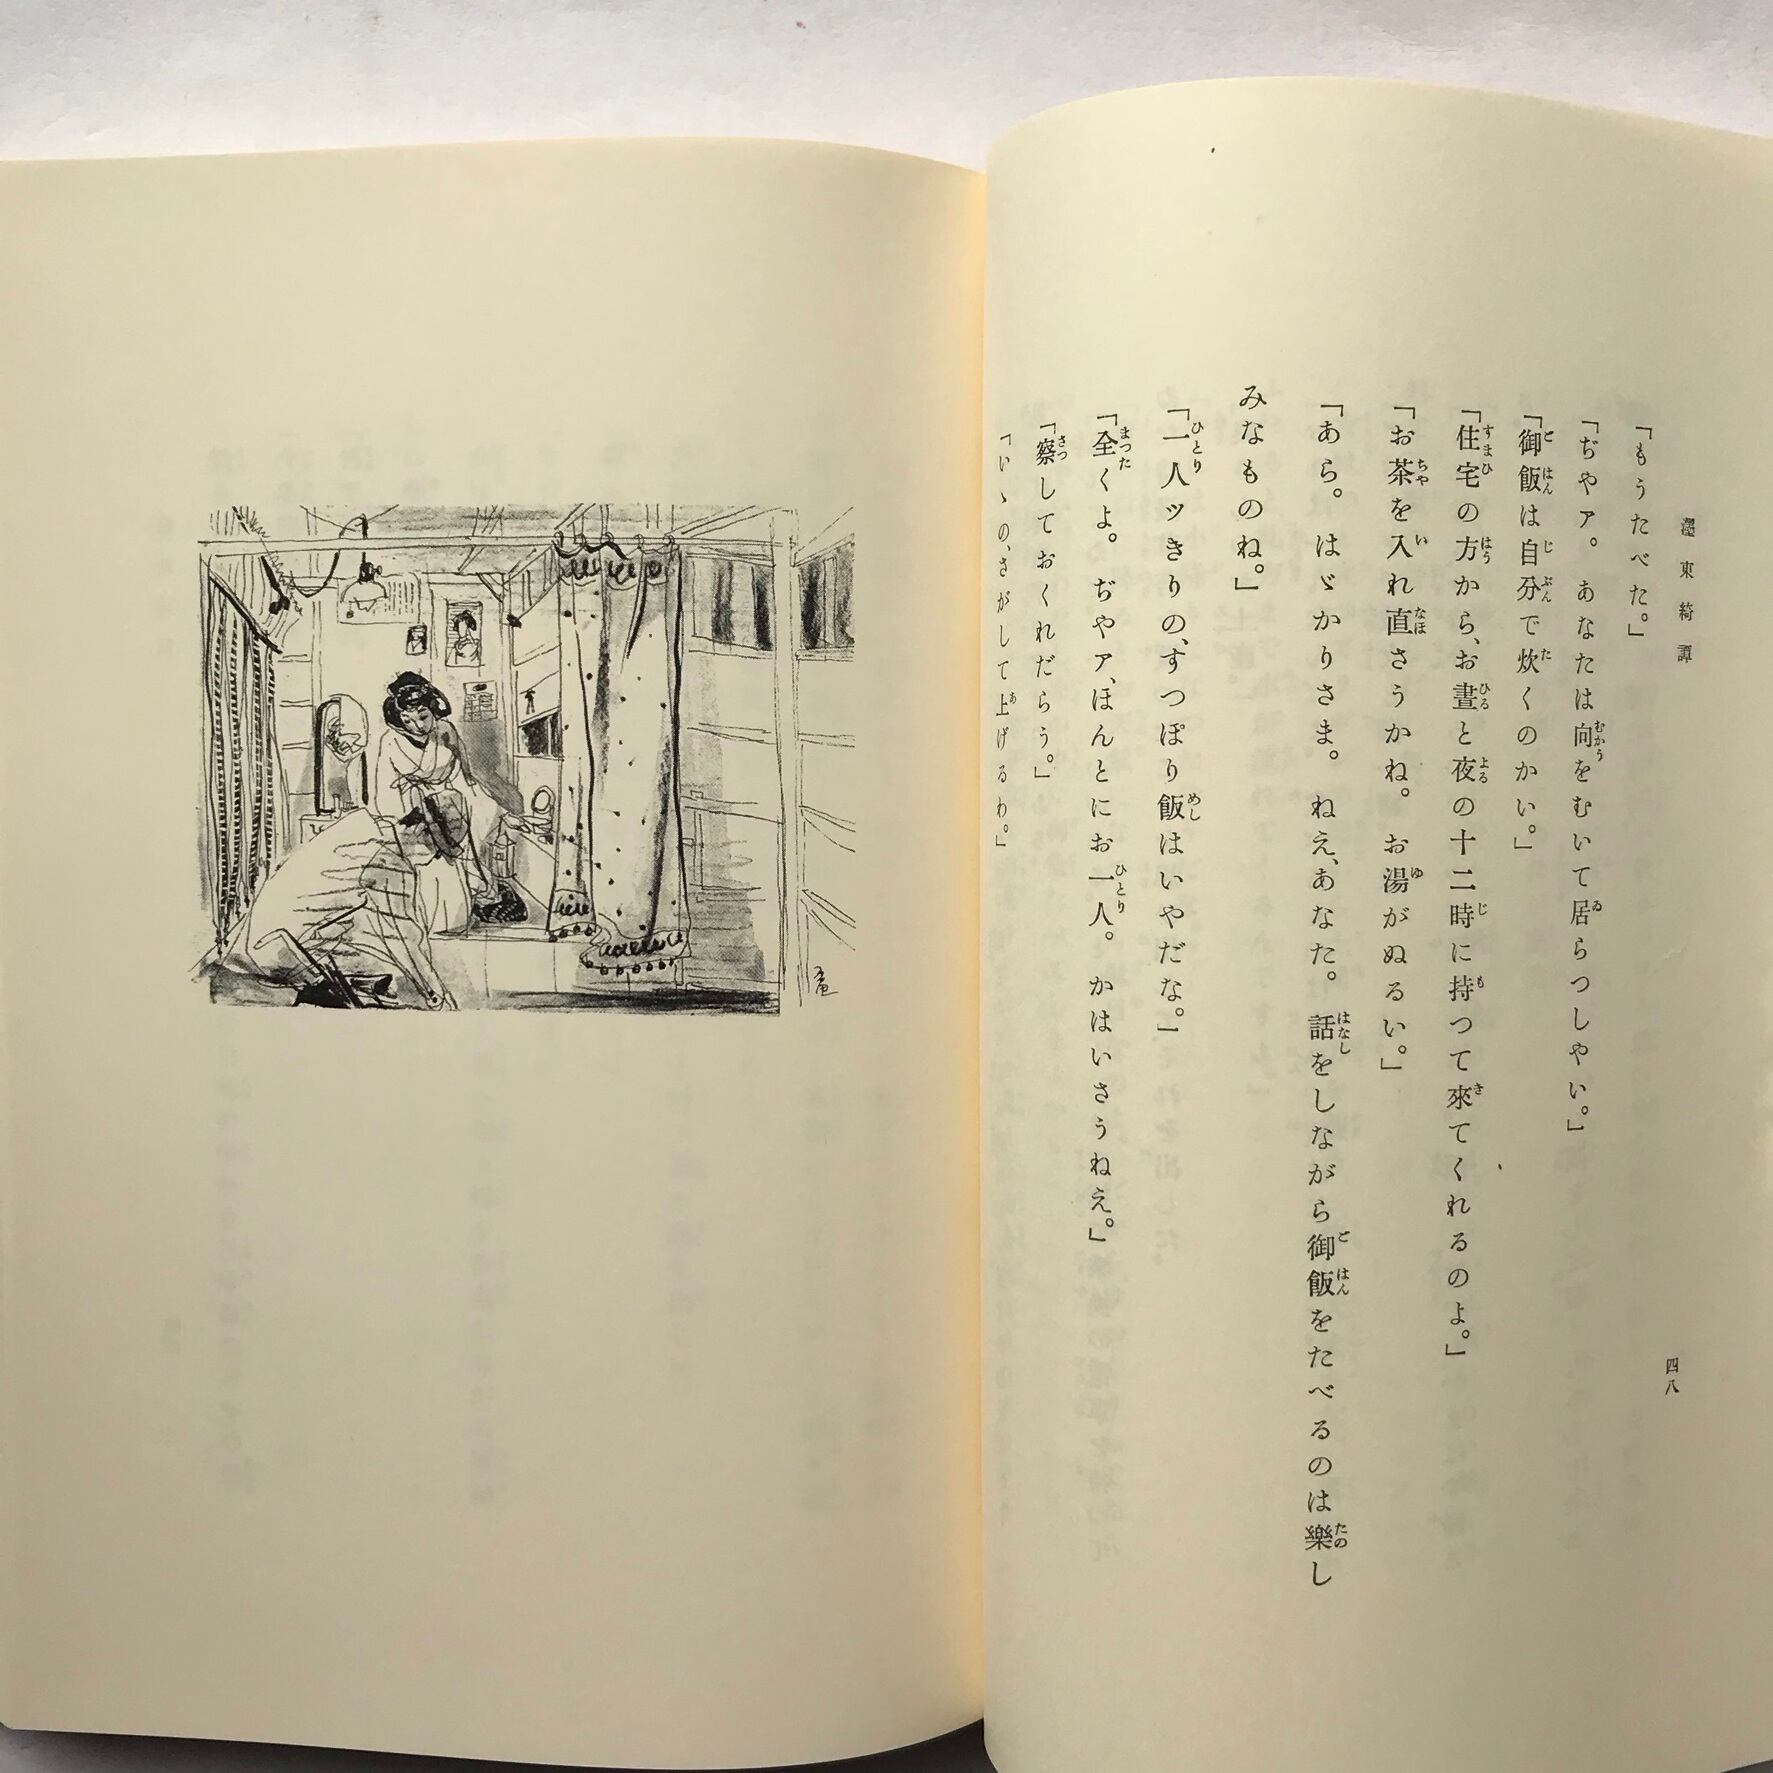 濹東綺譚
四八
「もうたべた。」
「ぢやア。あなたは向をむいて居らつしやい。」
「御飯は自分で炊くのかい。」
「住宅の方から、お晝と夜の十二時に持つて來てくれるのよ。」
「お茶を入れ直さうかね。お湯がぬるい。」
「あら。はゞかりさま。ねえ、あなた。話をしながら御飯をたべるのは樂し
みなものね。」
「一人ツきりの、すつぽり飯はいやだな。」
「全くよ。ぢやア、ほんとにお一人。かはいさうねえ。」
「察しておくれだらう。」
「いゝの、さがして上げるわ。」